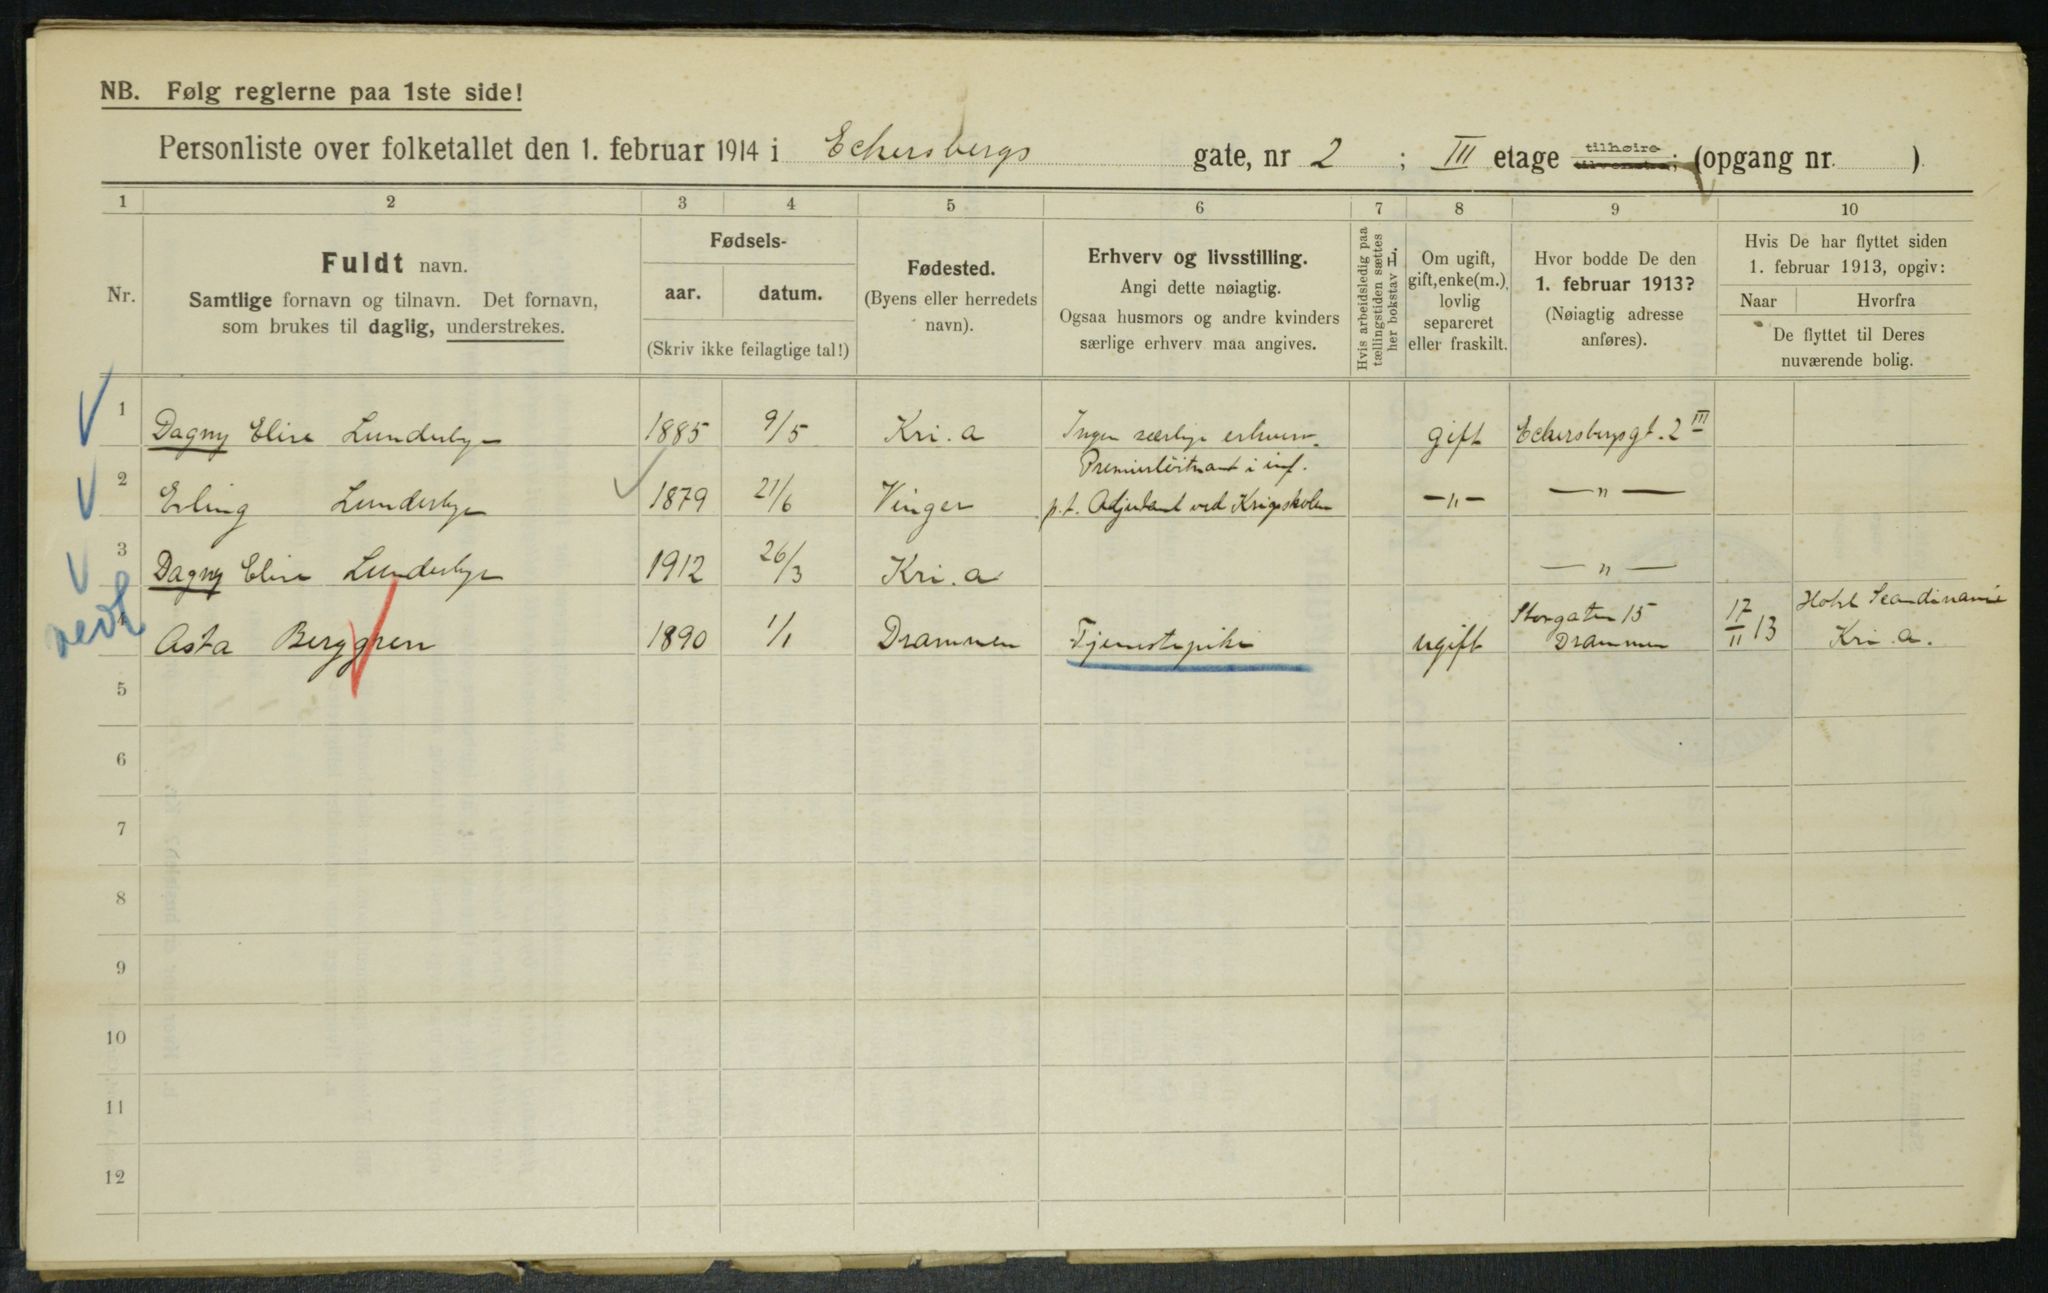 NB. Følg reglerne paa 1ste side!
Personliste over folketallet den 1. februar 1914 i Eckersbergs gate, nr 2 ; III etage tilhøire tilvenstre; (opgang nr. )
1 2 3 4 5 6 7 8 9 10
Nr.
Fuldt navn.
Samtlige fornavn og tilnavn. Det fornavn,
som brukes til daglig, understrekes.
Fødsels-
aar. datum.
(Skriv ikke feilagtige tal!)
Fødested.
(Byens eller herredets
navn).
Erhverv og livsstilling.
Angi dette nøiagtig.
Ogsaa husmors og andre kvinders
særlige erhverv maa angives.
Hvis arbeidsledig paa
tællingstiden sættes
her bokstav L.
Om ugift,
gift, enke(m.),
lovlig
separeret
eller fraskilt.
Hvor bodde De den
1. februar 1913?
(Nøiagtig adresse
anføres).
Hvis De har flyttet siden
1. februar 1913, opgiv:
Naar Hvorfra
De flyttet til Deres
nuværende bolig.
1 Dagny Elise Lundesbye 1885 9/5 Kri.a Ingen særlige erhverv. gift Eckersbergsgt. 2 III
2 Erling Lundesbye 1879 21/6 Vinger Premierløitnant i inf.
p.t. Adjutant ved Krigsskolen —"— —"—
3 Dagny Elise Lundesbye 1912 26/3 Kri.a —"—
4 Asta Berggren 1890 1/1 Drammen Tjenestepike ugift Storgaten 15
Drammen 17/11 13 Hotel Scandinavie
Kri.a.
5
6
7
8
9
10
11
12